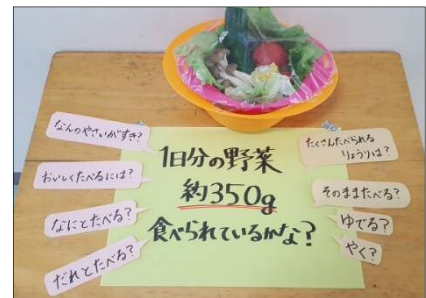 なんのやさいがすき?
おいしくたべるには?
なにとたべる?
だれとたべる?
1日分の野菜
約350g
食べられているかな?
たくさんたべられる
りょうりは?
そのままたべる?
ゆでる?
やく?